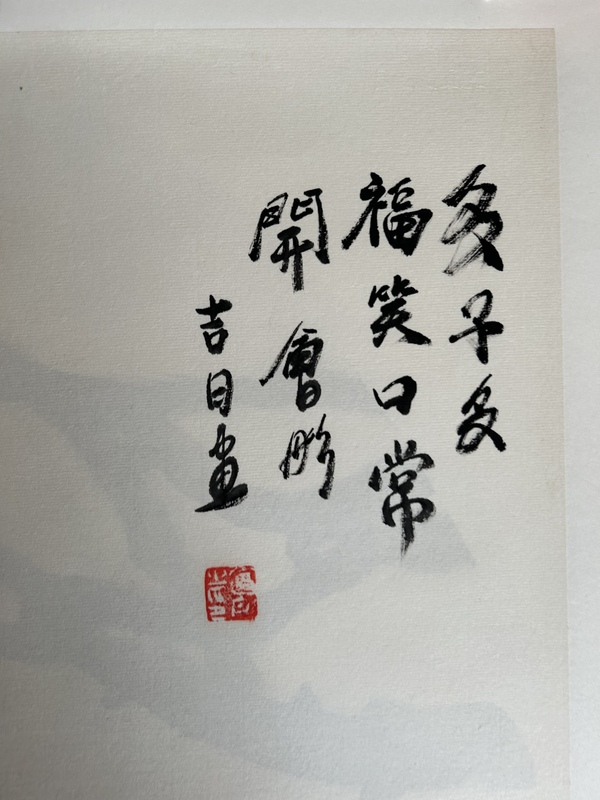 多子多
福笑口常
開會
吉日畫